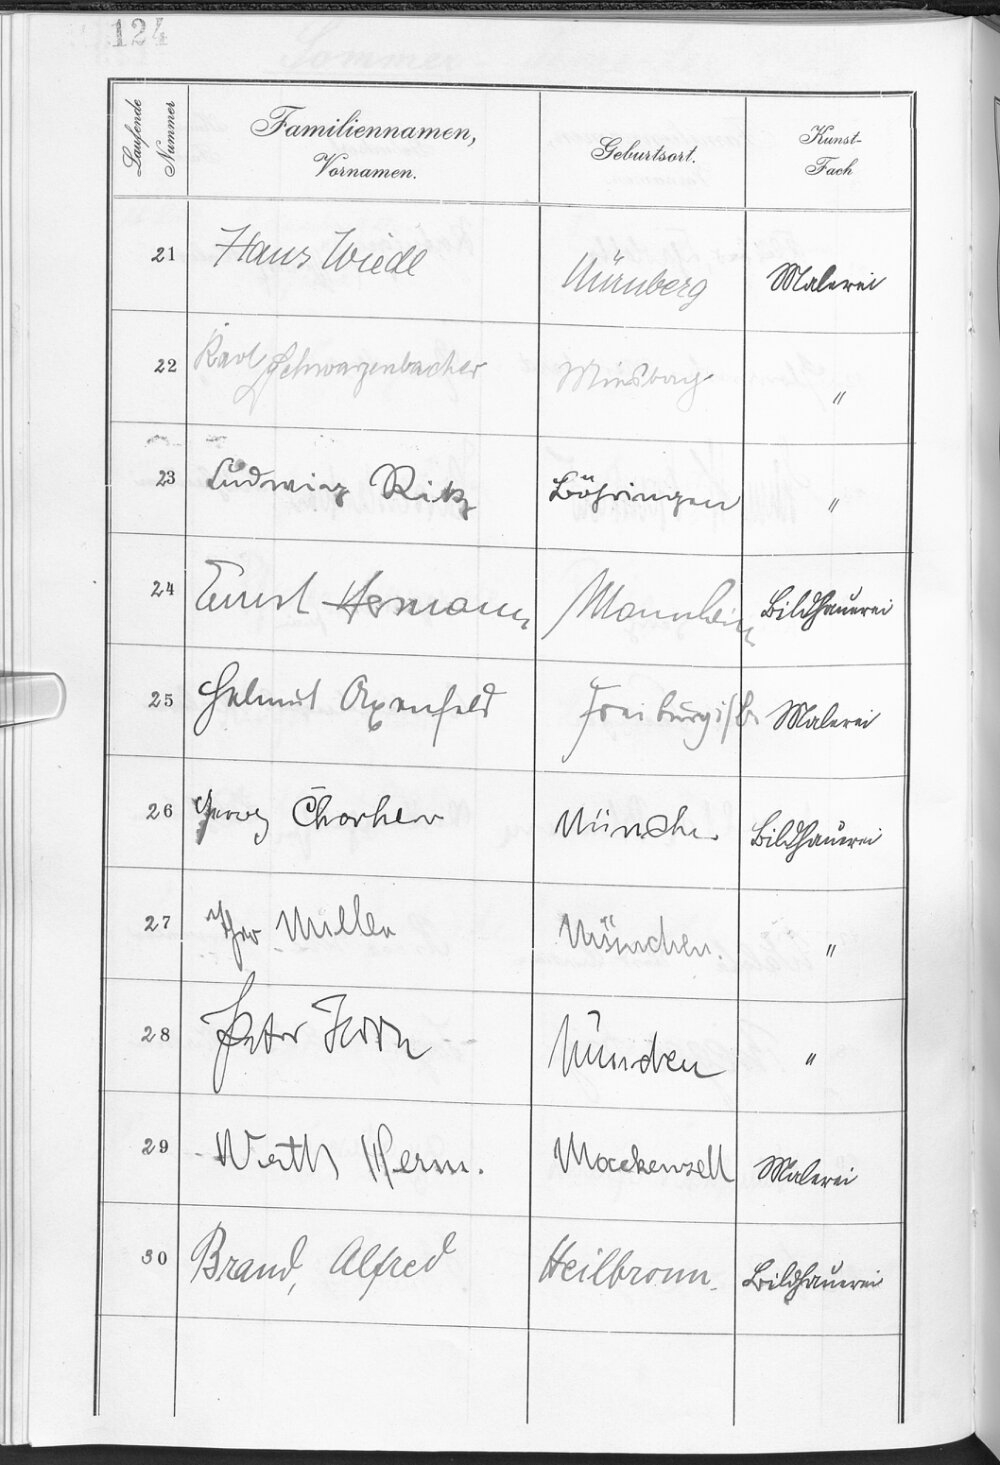 124
Laufende Nummer
Familiennamen, Vornamen.
Geburtsort.
Kunst-Fach
21 Hans Wiedl Nürnberg Malerei
22 Karl Schwarzenbacher Miesbach "
23 Ludwig Ritz Böhringen "
24 Ernst Hermann Mannheim Bildhauerei
25 Helmut Axenfeld Freiburg i/Br Malerei
26 Georg Chorherr München Bildhauerei
27 Miller München. "
28 Peter Horn München "
29 Werth Herm. Mackenzell Malerei
30 Brand, Alfred Heilbronn. Bildhauerei